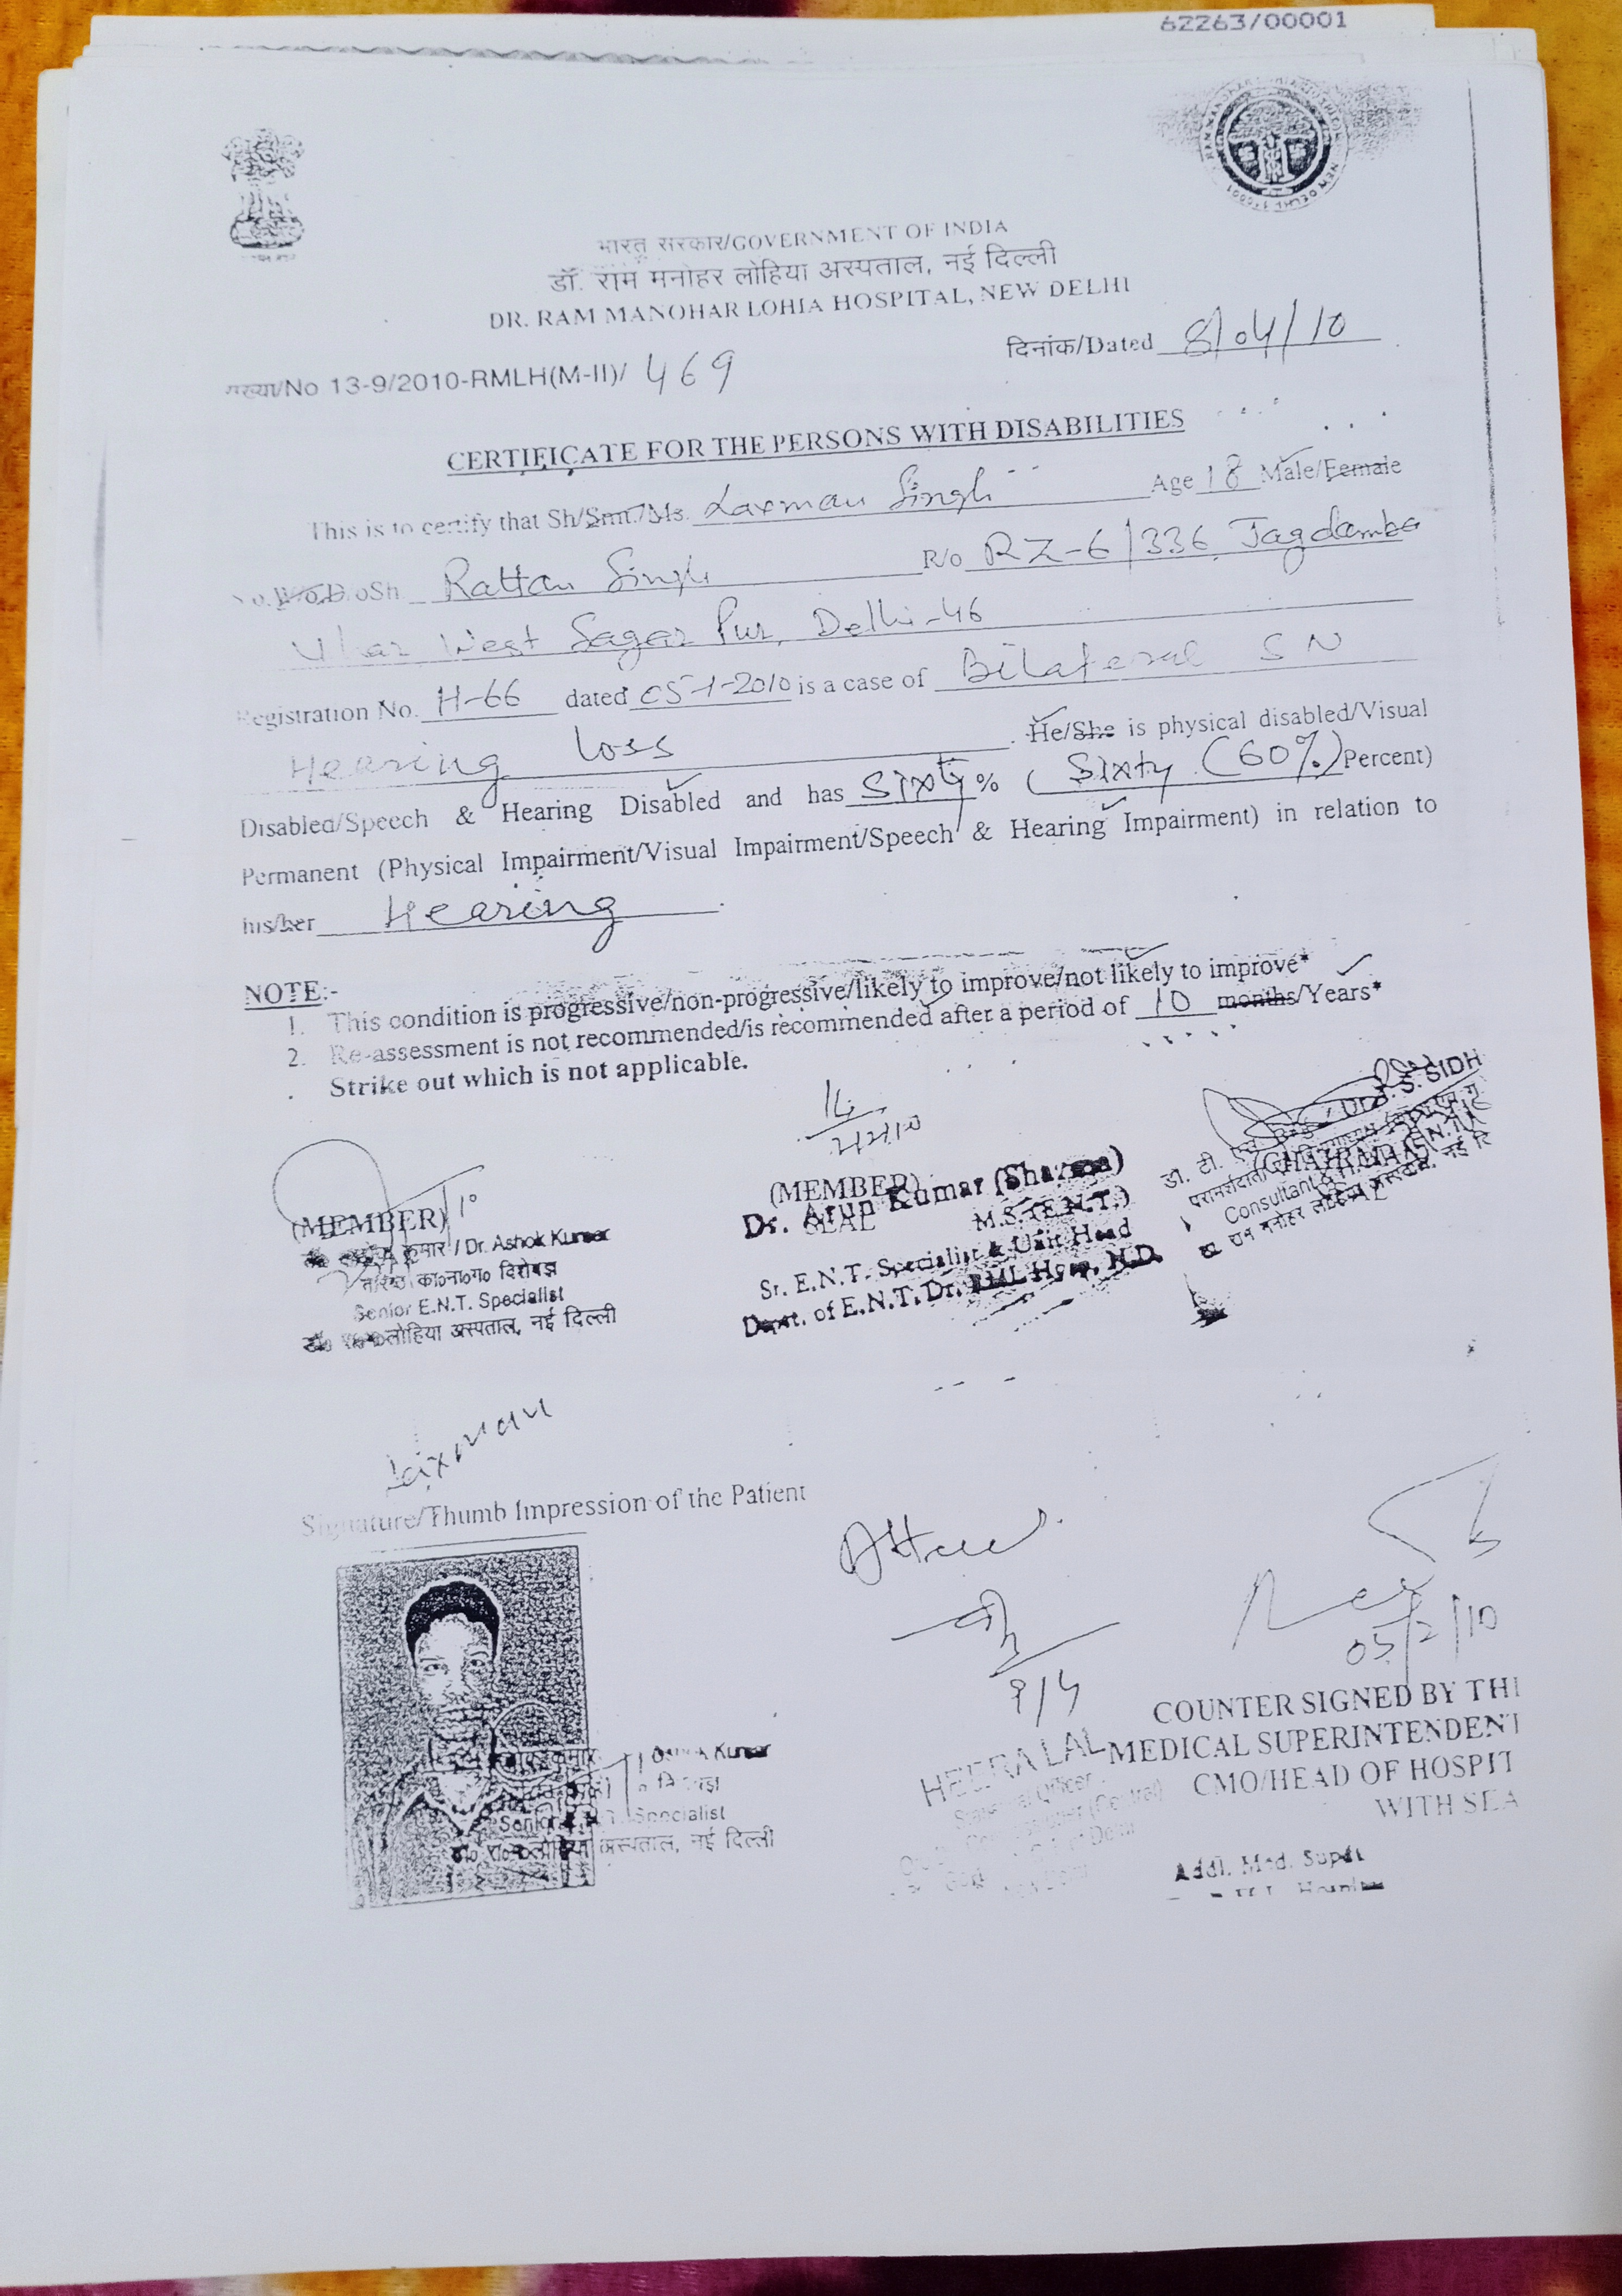 62263/00001
भारत सरकार/GOVERNMENT OF INDIA
डॉ. राम मनोहर लोहिया अस्पताल, नई दिल्ली
DR. RAM MANOHAR LOHIA HOSPITAL, NEW DELHI
दिनांक/Dated 8/04/10
संख्या/No 13-9/2010-RMLH(M-II)/ 469
CERTIFICATE FOR THE PERSONS WITH DISABILITIES
This is to certify that Sh/Smt./Ms. Laxman Singh Age 18 Male/Female
Rattan Singh R/o RZ-6/336, Jagdamba
West Sagar Pur, Delhi-46
Registration No. H-66 dated 05-1-2010 is a case of Bilateral SN
Hearing loss. He/She is physical disabled/Visual
Disabled/Speech & Hearing Disabled and has Sixty % (Sixty (60%) Percent)
Permanent (Physical Impairment/Visual Impairment/Speech & Hearing Impairment) in relation to
his/her Hearing.
NOTE:-
1. This condition is progressive/non-progressive/likely to improve/not likely to improve*
2. Re-assessment is not recommended/is recommended after a period of 10 months/Years*
Strike out which is not applicable.
(MEMBER)
कुमार / Dr. Ashok Kumar
Senior E.N.T. Specialist
लोहिया अस्पताल, नई दिल्ली
(MEMBER)
SEAL
Dr. Arun Kumar (Sharma)
M.S. (E.N.T.)
Sr. E.N.T. Specialist & Unit Head
Deptt. of E.N.T. Dr. RML Hosp, N.D.
S. SIDH
(CHAIRMAN)
Consultant
मनोहर लोहिया अस्पताल, नई दि
Laxman
Signature/Thumb Impression of the Patient
Ashok Kumar
Senior Specialist
अस्पताल, नई दिल्ली
9/4
HEERA LAL
05/2/10
COUNTER SIGNED BY THE
MEDICAL SUPERINTENDENT
CMO/HEAD OF HOSPIT
WITH SEA
Addl. Med. Supdt